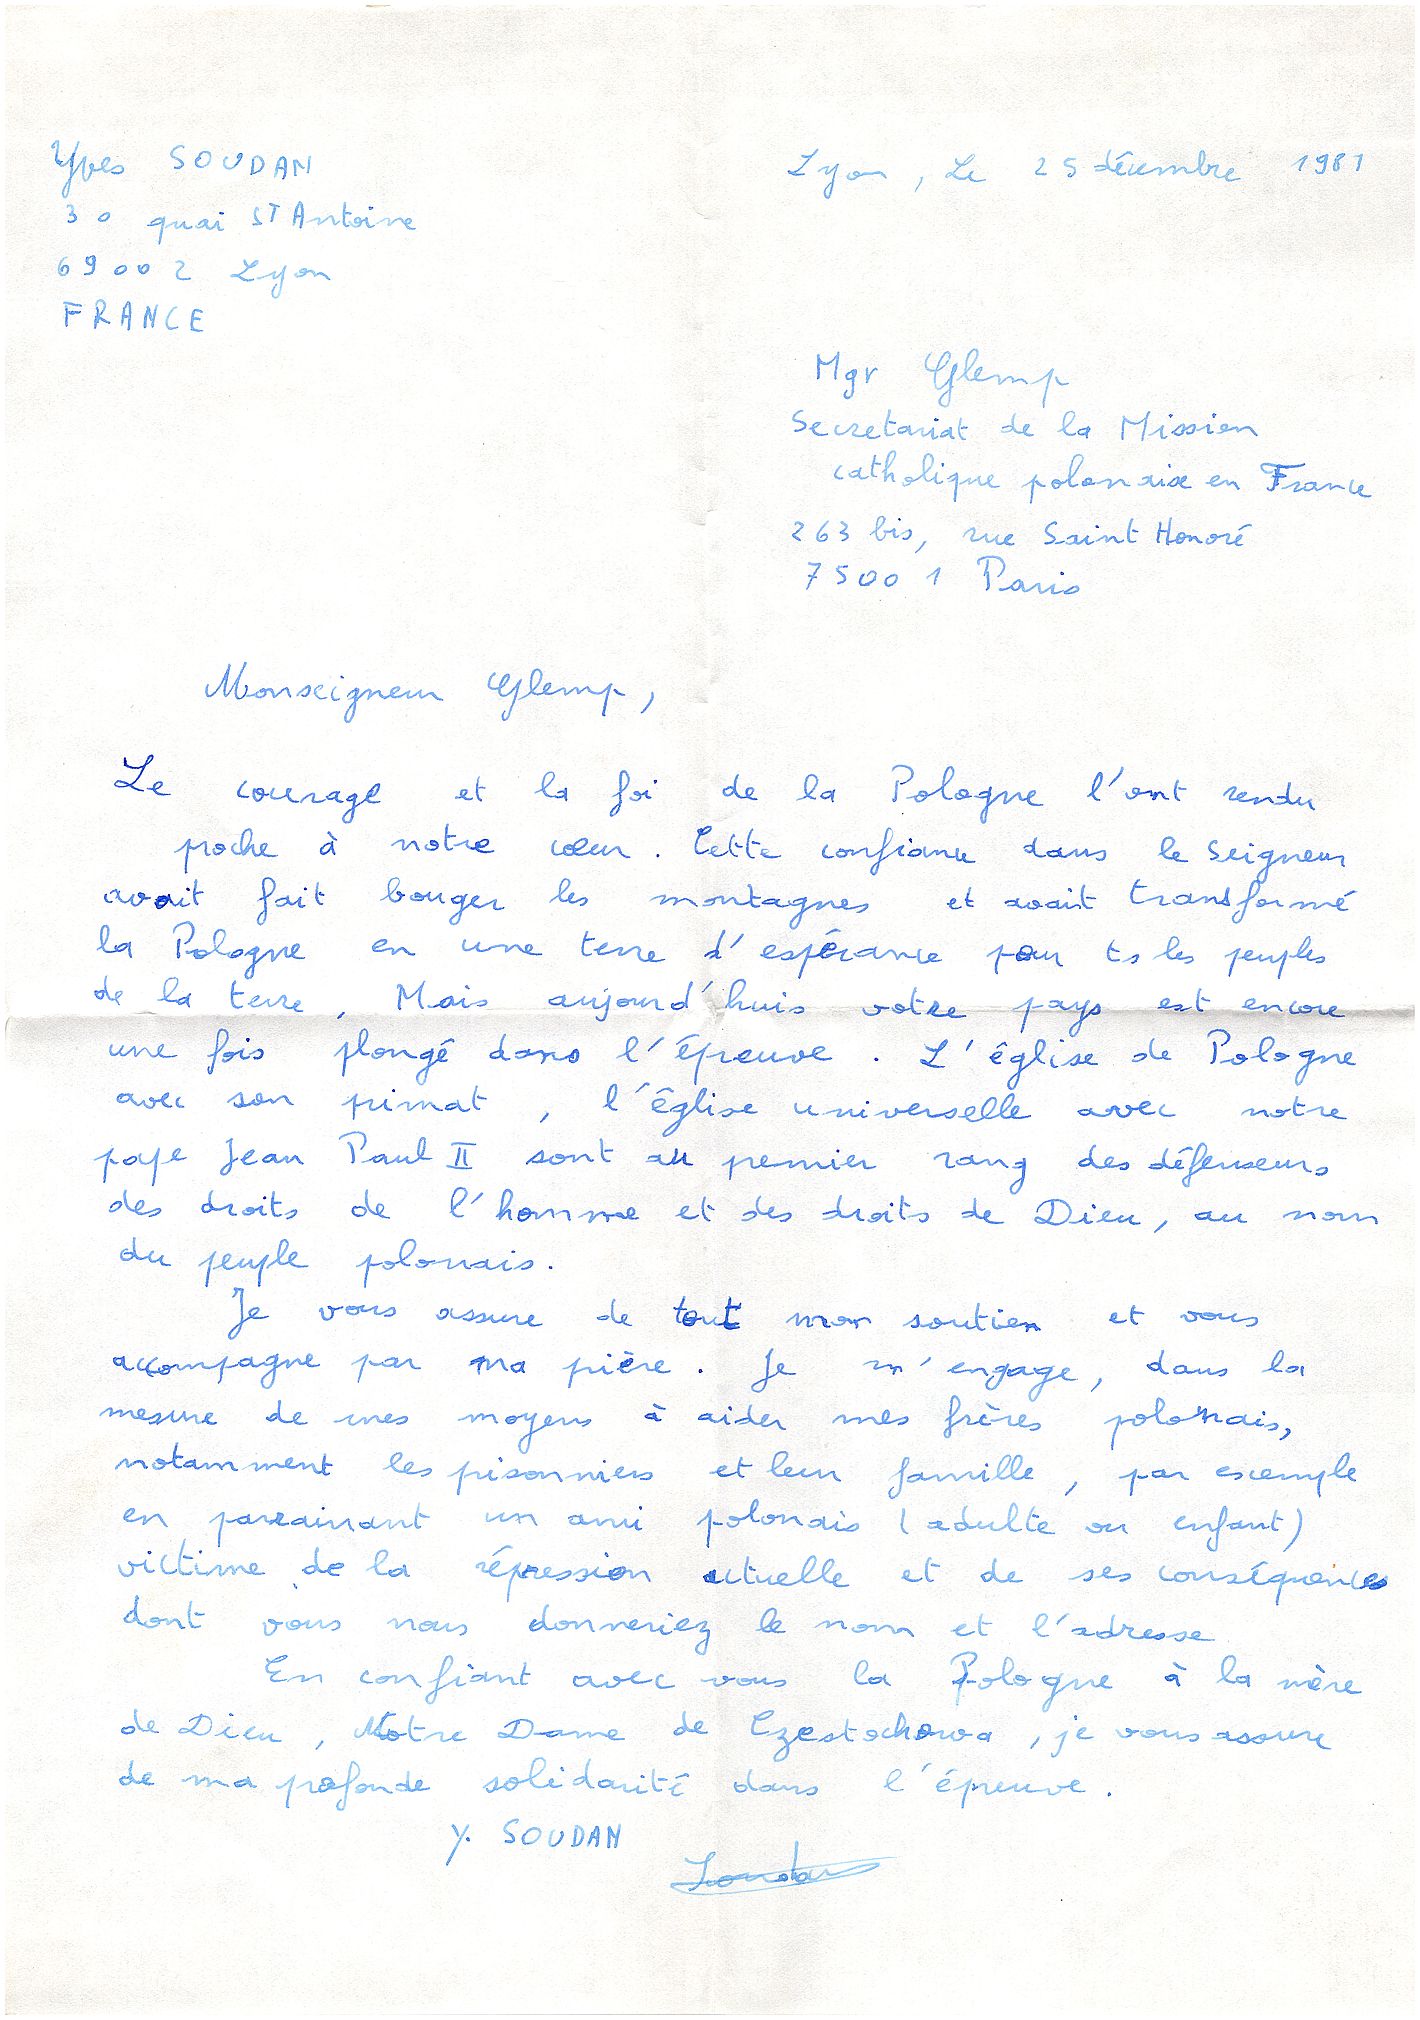 Yves SOUDAN
30 quai ST Antoine
69002 Lyon
FRANCE
Lyon, Le 25 décembre 1981
Mgr Glemp
Secretariat de la Mission
catholique polonaise en France
263 bis, rue Saint Honoré
75001 Paris
Monseigneur Glemp,
Le courage et la foi de la Pologne l'ont rendu
proche à notre cœur. Cette confiance dans le Seigneur
avait fait bouger les montagnes et avait transformé
la Pologne en une terre d'espérance pour ts les peuples
de la terre, Mais aujourd'huis votre pays est encore
une fois plongé dans l'épreuve. L'église de Pologne
avec son primat, l'Église universelle avec notre
pape Jean Paul II sont au premier rang des défenseurs
des droits de l'homme et des droits de Dieu, au nom
du peuple polonais.
Je vous assure de tout mon soutien et vous
accompagne par ma prière. Je m'engage, dans la
mesure de mes moyens à aider mes frères polonais,
notamment les prisonniers et leur famille, par exemple
en parrainant un ami polonais (adulte ou enfant)
victime de la répression actuelle et de ses conséquences
dont vous nous donneriez le nom et l'adresse
En confiant avec vous la Pologne à la mère
de Dieu, Notre Dame de Czestochowa, je vous assure
de ma profonde solidarité dans l'épreuve.
Y. SOUDAN
Soudan